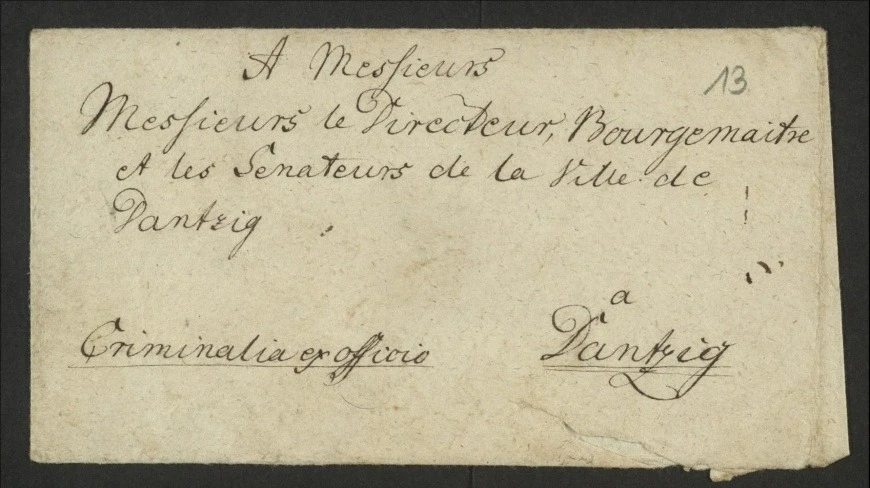 A Messieurs
13
Messieurs le Directeur, Bourgemaitre
et les Senateurs de la Ville de
Dantzig
Criminalia ex officio
a
Dantzig